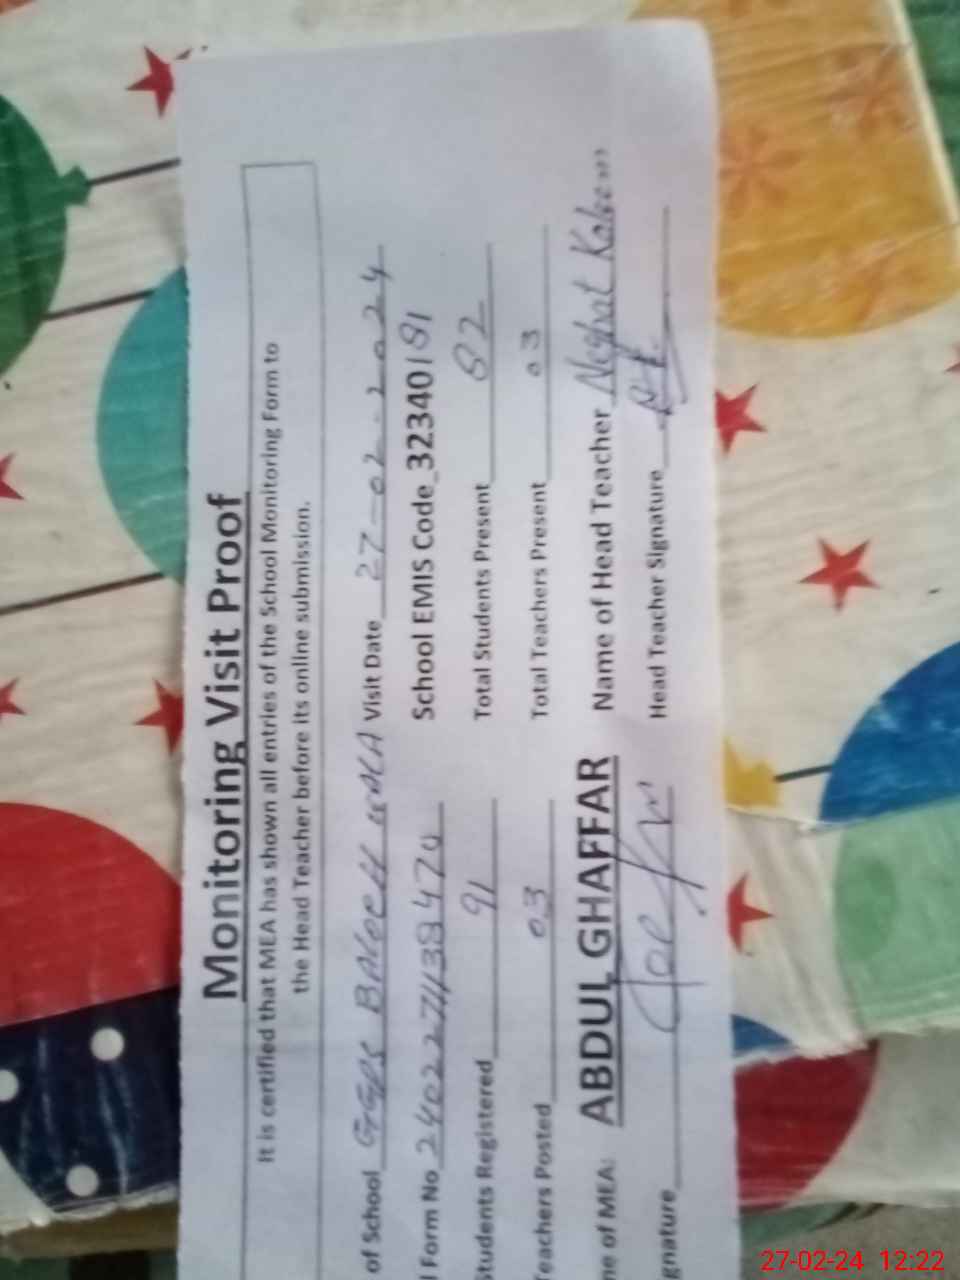 Monitoring Visit Proof
It is certified that MEA has shown all entries of the School Monitoring Form to
the Head Teacher before its online submission.
of School GGPS BALOCH WALA Visit Date 27-02-2024
l Form No 240227113847 School EMIS Code 32340181
Students Registered 91 Total Students Present 82
Teachers Posted 03 Total Teachers Present 03
me of MEA: ABDUL GHAFFAR Name of Head Teacher Kaleem
gnature Head Teacher Signature
27-02-24 12:22